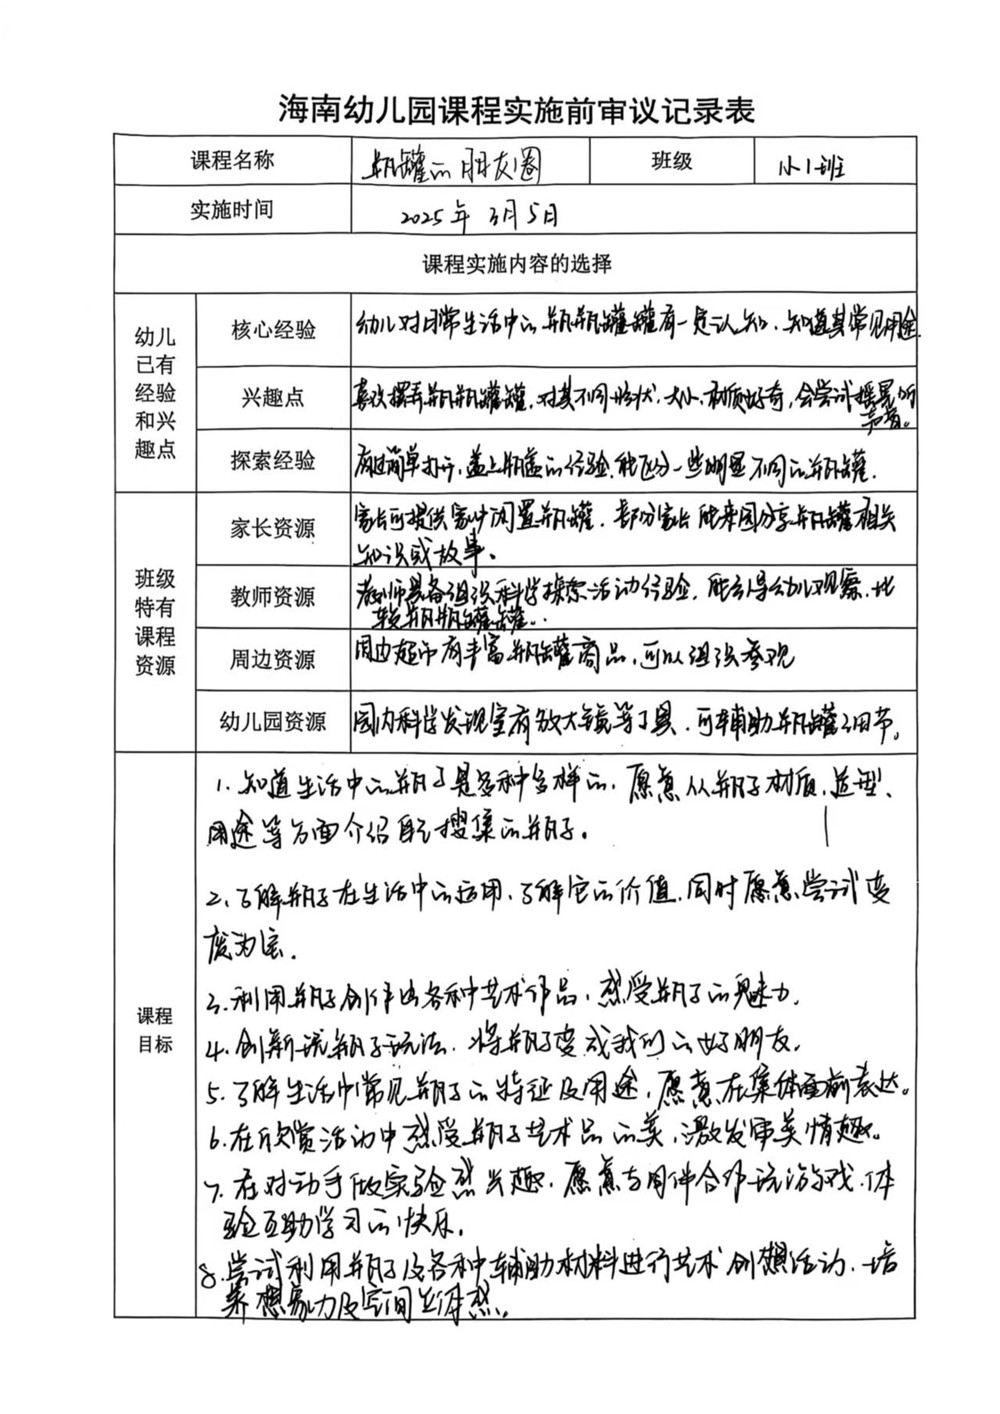 海南幼儿园课程实施前审议记录表
课程名称 瓶罐的朋友圈 班级 小1班
实施时间 2025年3月5日
课程实施内容的选择
幼儿已有经验和兴趣点
核心经验 幼儿对日常生活中的瓶瓶罐罐有一定认知，知道其常见用途.
兴趣点 喜欢摆弄瓶瓶罐罐，对其不同形状、大小、材质好奇，会尝试摇晃听
声音。
探索经验 有过简单打开、盖上瓶盖的经验，能区分一些明显不同的瓶罐.
班级特有课程资源
家长资源 家长可提供家中闲置瓶罐，部分家长能来园分享瓶罐相关
知识或故事。
教师资源 教师具备组织科学探索活动经验，能引导幼儿观察、比
较瓶瓶罐罐。
周边资源 周边超市有丰富瓶罐商品，可以组织参观
幼儿园资源 园内科学发现室有放大镜等工具，可辅助瓶罐细节。
课程目标
1、知道生活中的瓶子是各种各样的，愿意从瓶子材质、造型、
用途等方面介绍自己搜集的瓶子。
2、了解瓶子在生活中的运用，了解它的价值，同时愿意尝试变
废为宝.
3.利用瓶子创作出各种艺术作品，感受瓶子的魅力.
4.创新玩瓶子玩法，将瓶子变成我们的好朋友.
5.了解生活中常见瓶子的特征及用途，愿意在集体面前表达。
6.在欣赏活动中感受瓶子艺术品的美，激发审美情趣。
7.在对动手做实验感兴趣，愿意与同伴合作玩游戏，体
验互助学习的快乐.
8.尝试利用瓶子及各种辅助材料进行艺术创想活动，培
养想象力及空间立体感。